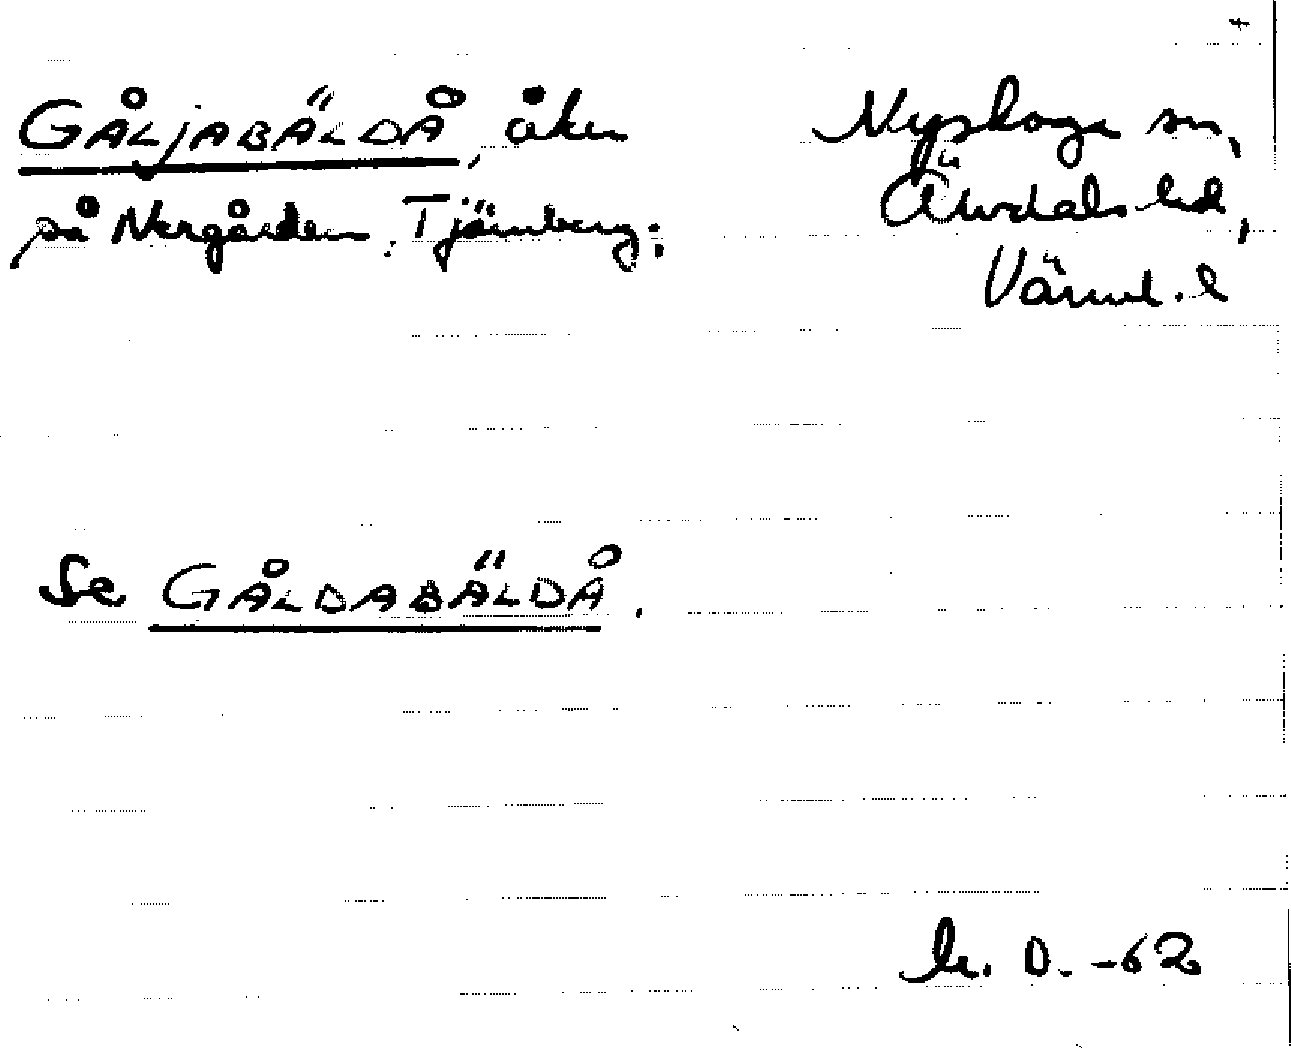 GÅLJABÄLDÅ, åker
på Nergården, Tjärnberg.
Nyskoga sn,
Älvdals hd,
Värml. l
Se GÅLDABÄLDÅ.
D. -62